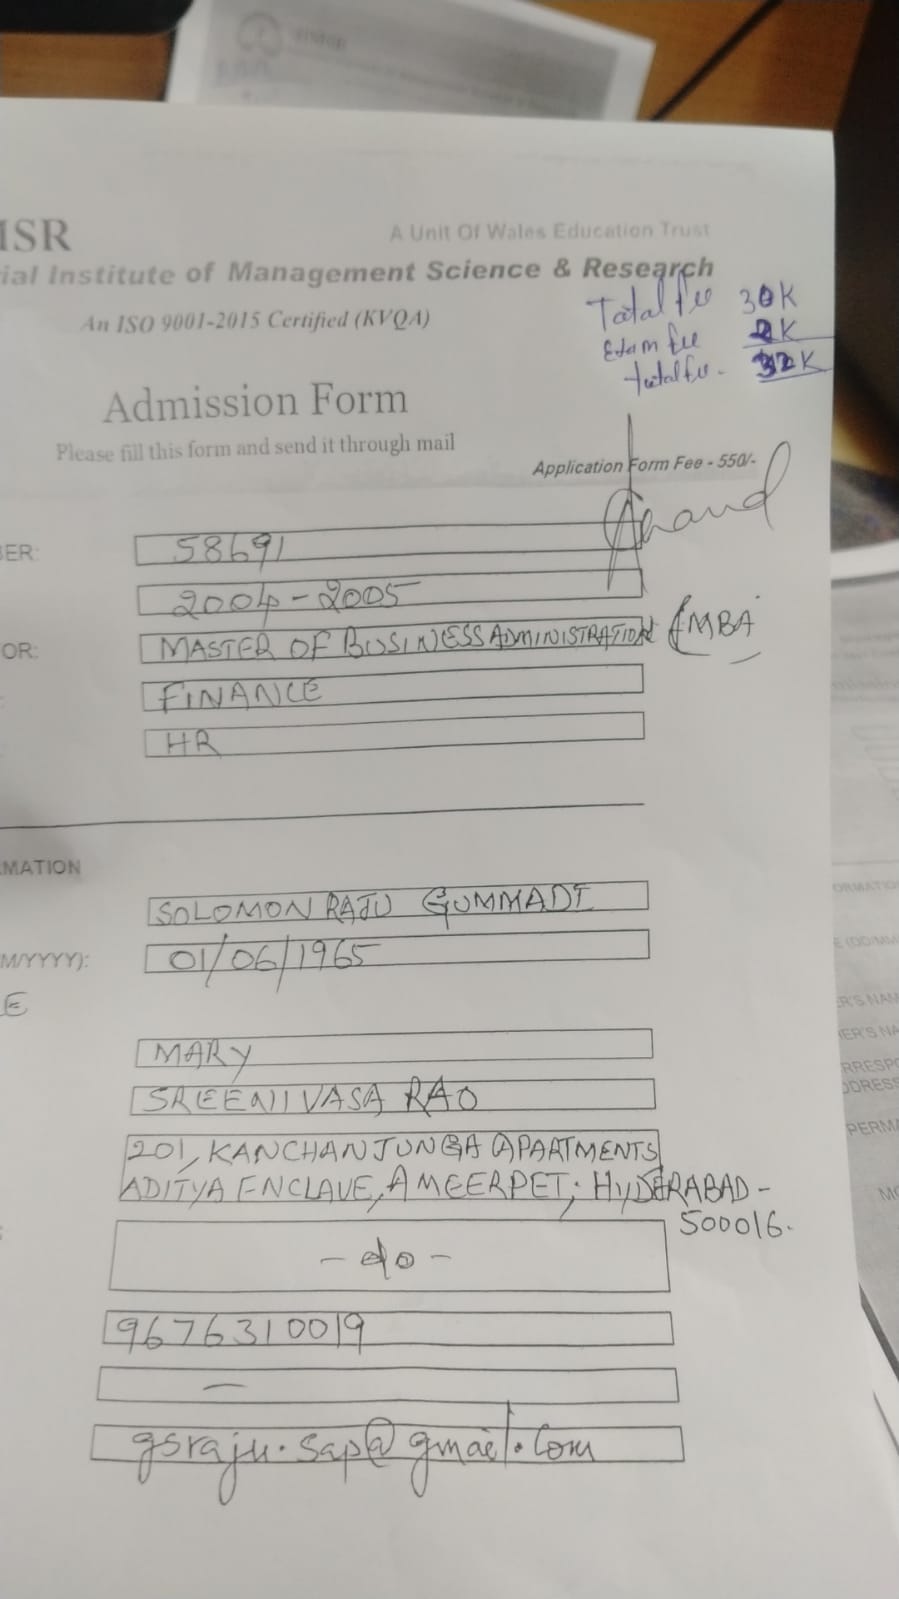 ISR
A Unit Of Wales Education Trust
ial Institute of Management Science & Research
An ISO 9001-2015 Certified (KVQA)
Total fee 30K
Exam fee 2K
total fee - 32K
Admission Form
Please fill this form and send it through mail
Application Form Fee - 550/-
Anand
BER: 58691
2004-2005
OR: MASTER OF BUSINESS ADMINISTRATION (MBA
FINANCE
HR
MATION
SOLOMON RAJU GUMMADI
M/YYYY): 01/06/1965
E
MARY
SREENIVASA RAO
201, KANCHANJUNGA APARTMENTS
ADITYA ENCLAVE, AMEERPET, HYDERABAD -
500016.
- do -
9676310019
-
gsraju.sap@gmail.com